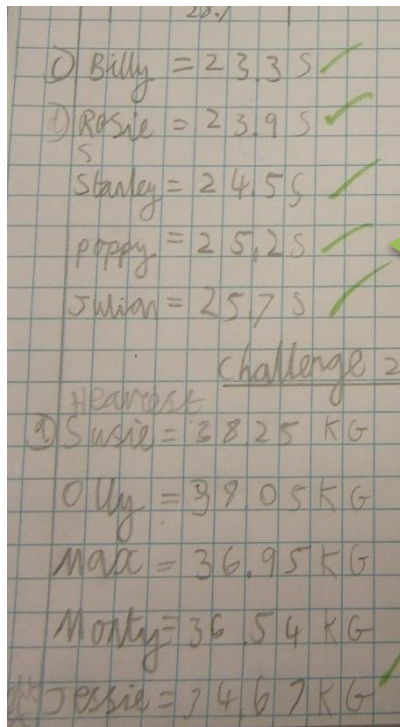 c) Billy = 23.3 S
d) Rosie = 23.9 S
S
Stanley = 24.5 S
poppy = 25.2 S
Julian = 25.7 S
Challenge 2
Heaviest
a) Susie = 38 25 KG
Olly = 38.05 KG
Max = 36.95 KG
Monty = 36.54 KG
Jessie = 34.67 KG